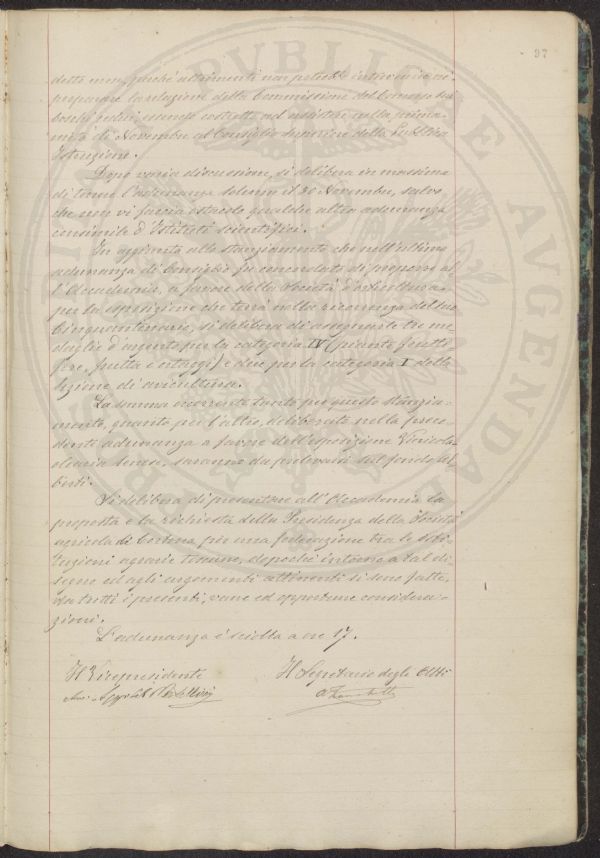 97
detto mese, perchè altrimenti non potrebbe intervenire
preparare la relazione della Commissione del Concorso sui
boschi cedui, essendo costretto ad assistere nella prima
metà di Novembre al Consiglio superiore della Pubblica
Istruzione.
Dopo varia discussione, si delibera in massima
di tenere l'adunanza solenne il 30 Novembre, salvo
che non vi faccia ostacolo qualche altra adunanza
consimile d'Istituti scientifici.
In aggiunta allo stanziamento che nell'ultima
adunanza di Consiglio fu emendato di proporre al
l'Accademia, a favore della Società d'orticultura
per la esposizione che terrà nella ricorrenza del suo
Cinquantenario, si delibera di assegnare tre me
daglie d'argento per la categoria IV (piante frutti
fere, frutta e ortaggi) e due per la categoria I della
sezione di avicultura.
La somma occorrente tanto per questo stanzia-
mento, quanto per l'altro, deliberato nella prece-
dente adunanza a favore dell'esposizione Vinicola
olearia senese, saranno da prelevarsi sul fondo Al
berti.
Si delibera di presentare all'Accademia la
proposta e la richiesta della Presidenza della Società
agricola di Cortona per una federazione tra le Isti
tuzioni agrarie toscane, dopochè intorno a tal di-
segno ed agli argomenti attinenti si sono fatte,
da tutti i presenti, varie ed opportune considera
zioni.
L'adunanza è sciolta a ore 17.
Il Vicepresidente
Il Segretario degli Atti
PUBLICAE
AUGENDAE